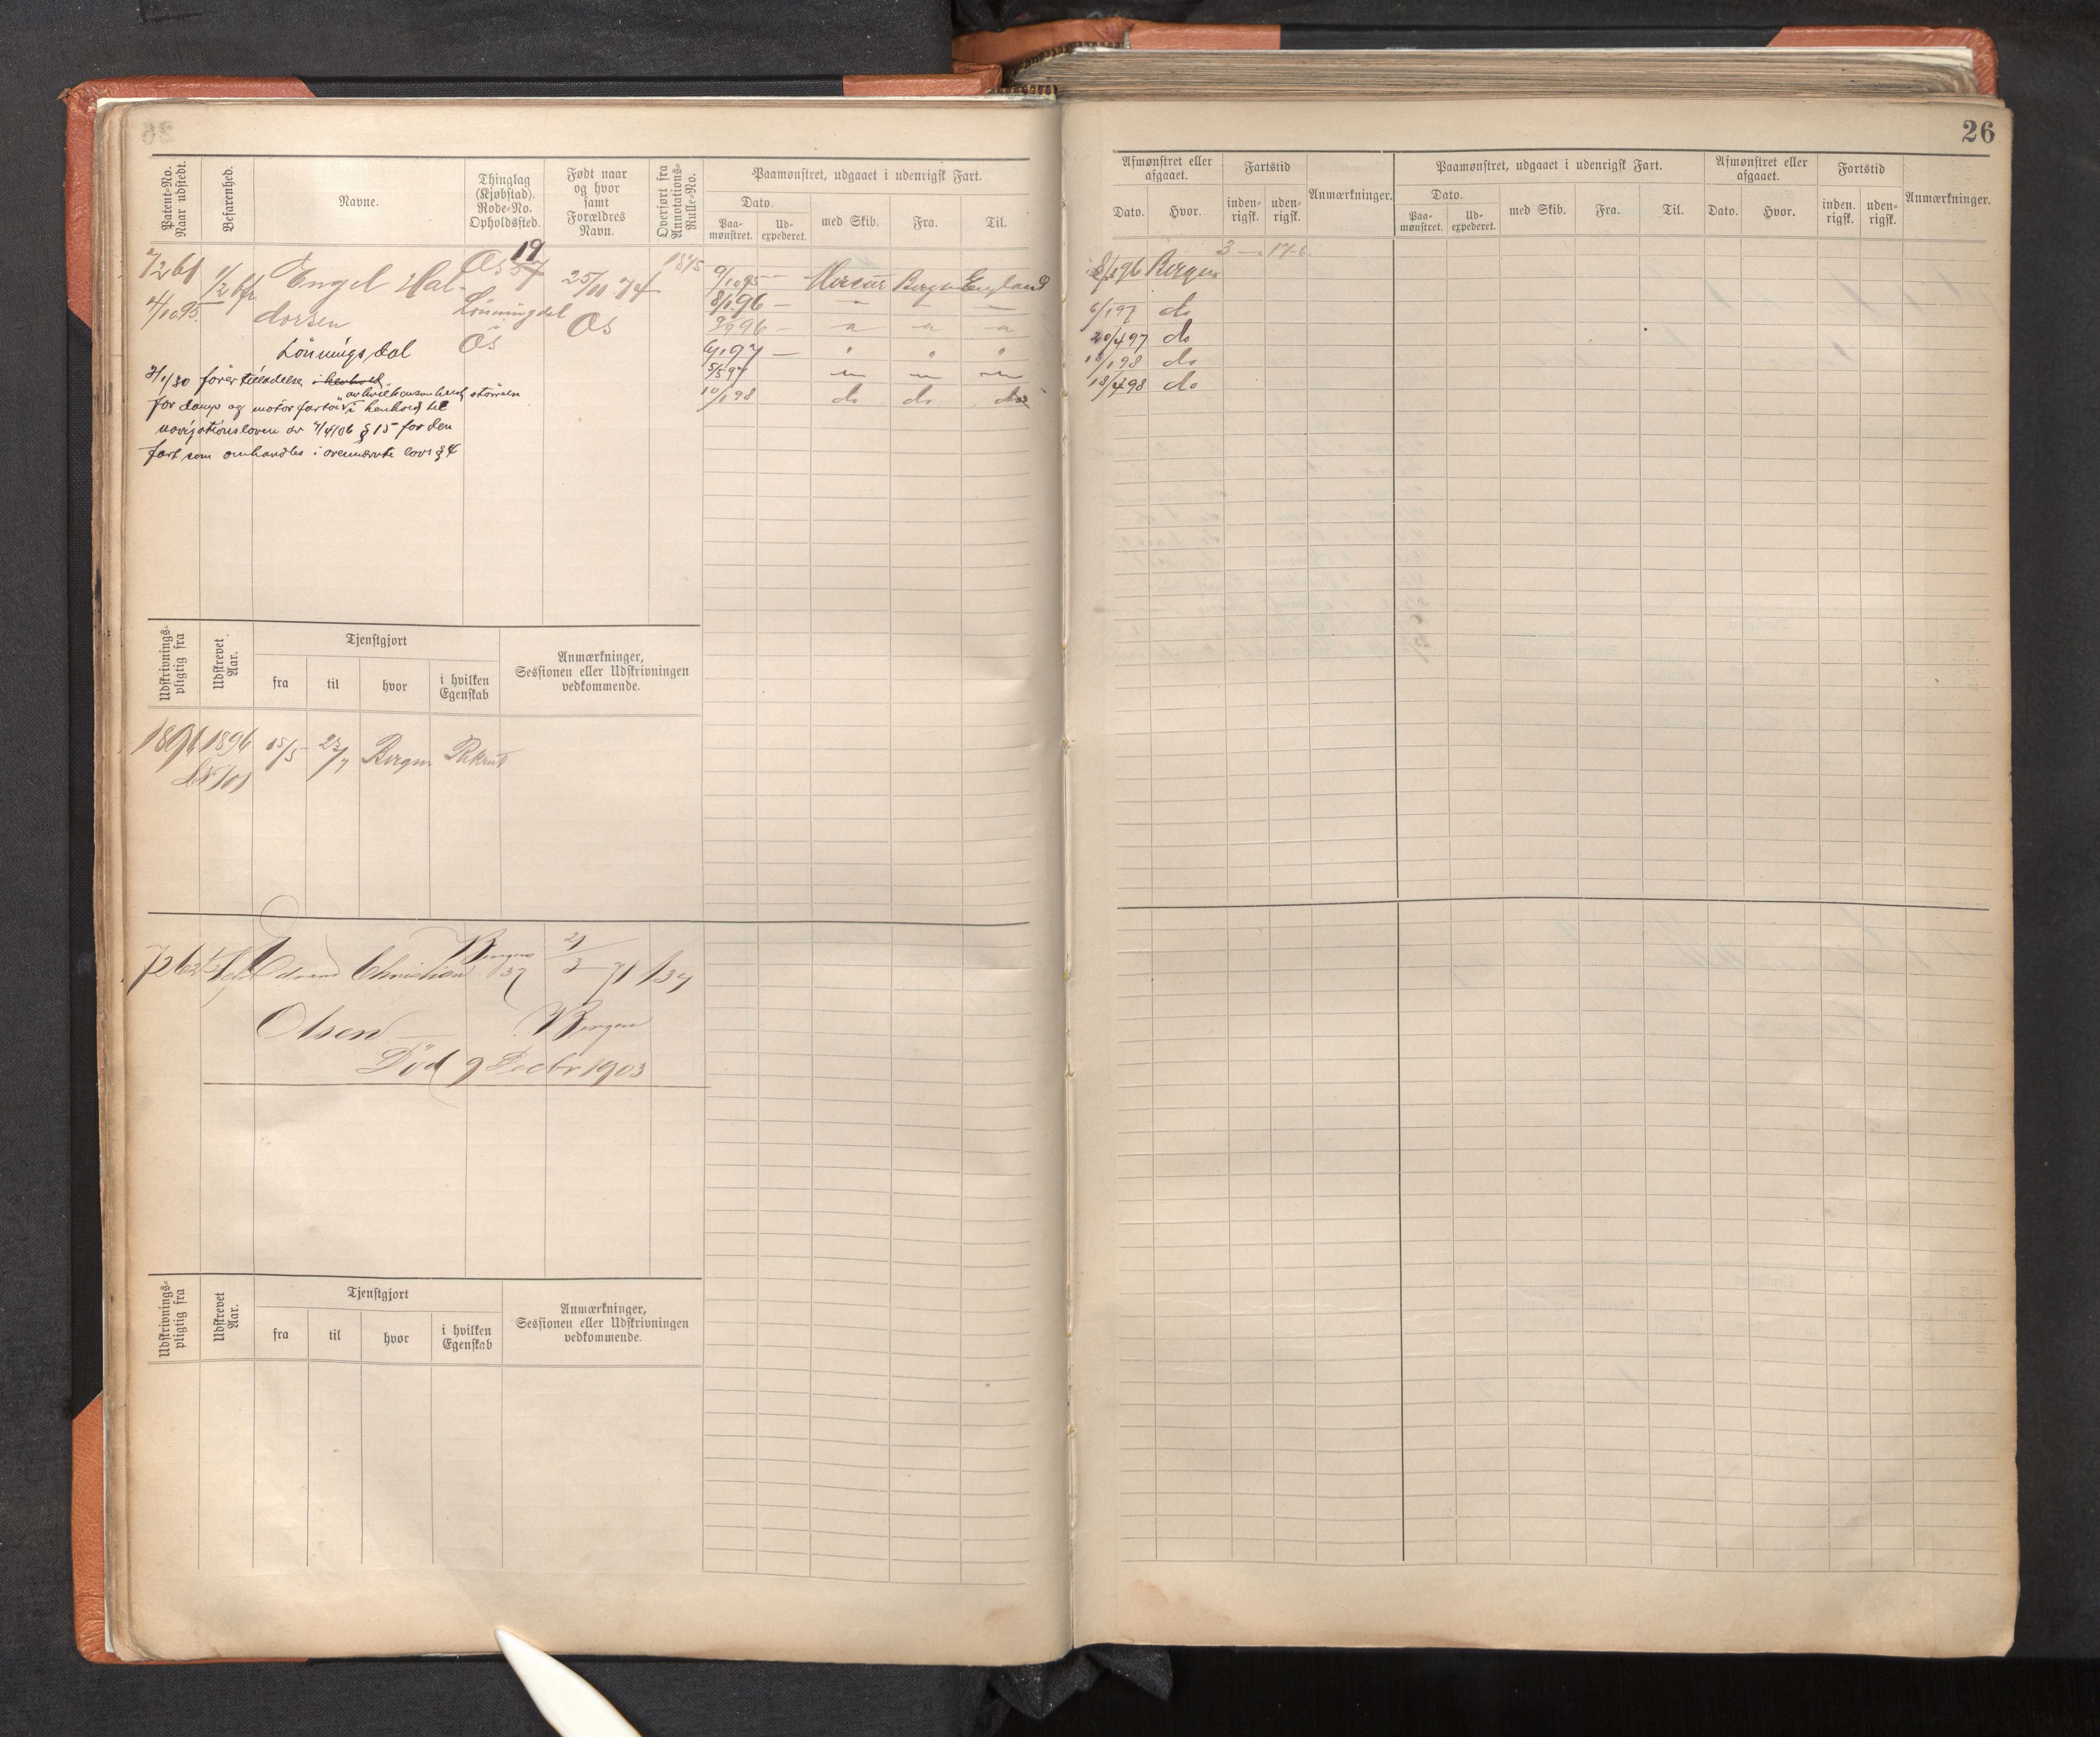 26
Patent-No. Naar udstedt.
Befarenhed.
Navne.
Thinglag (Kjøbstad). Rode-No. Opholdssted.
Født naar og hvor samt Forældres Navn.
Overført fra Annotations-Rulle-No.
Paamønstret, udgaaet i udenrigsk Fart.
Dato.
Paa-mønstret.
Ud-expederet.
med Skib.
Fra.
Til.
7261
4/10 95.
1/2 bfr
Engel Hal-
dorsen
Lönningdal
Os 57
19
Lönningdal
Os
25/11 74
Os
1845
9/10 95 — Mercur Bergen England
8/1 96 — " — —
9/9 96 — " " "
6/1 97 — " " "
5/5 97 " " "
10/1 98 do do do
3/1/30 förertilladelse i henhold
av hvilkensomhelst størrelse
for damp og motorfartöi i henhold til
navigationsloven av 4/4/06 § 15 for den
fart som omhandles i ovennævnte lovs § 4
Udskrivnings-pligtig fra
Udskrevet Aar.
Tjenstgjort
fra
til
hvor
i hvilken Egenskab
Anmærkninger, Sessionen eller Udskrivningen vedkommende.
1896 1896 15/5 23/7 Bergen Rekrut
LN 101
7262 Edvard Christian Bergen 37 21/3 71 134
Olsen — Bergen
Död 9 Decbr 1903
Udskrivnings-pligtig fra
Udskrevet Aar.
Tjenstgjort
fra
til
hvor
i hvilken Egenskab
Anmærkninger, Sessionen eller Udskrivningen vedkommende.
Afmønstret eller afgaaet.
Dato.
Hvor.
Fartstid
inden-rigsk.
uden-rigsk.
Anmærkninger.
Paamønstret, udgaaet i udenrigsk Fart.
Dato.
Paa-mønstret.
Ud-expederet.
med Skib.
Fra.
Til.
Afmønstret eller afgaaet.
Dato.
Hvor.
Fartstid
inden.rigsk.
uden-rigsk.
Anmærkninger.
3 — 17-6
8/1 96 Bergen
6/1 97 do
20/4 97 do
10/1 98 do
18/4 98 do